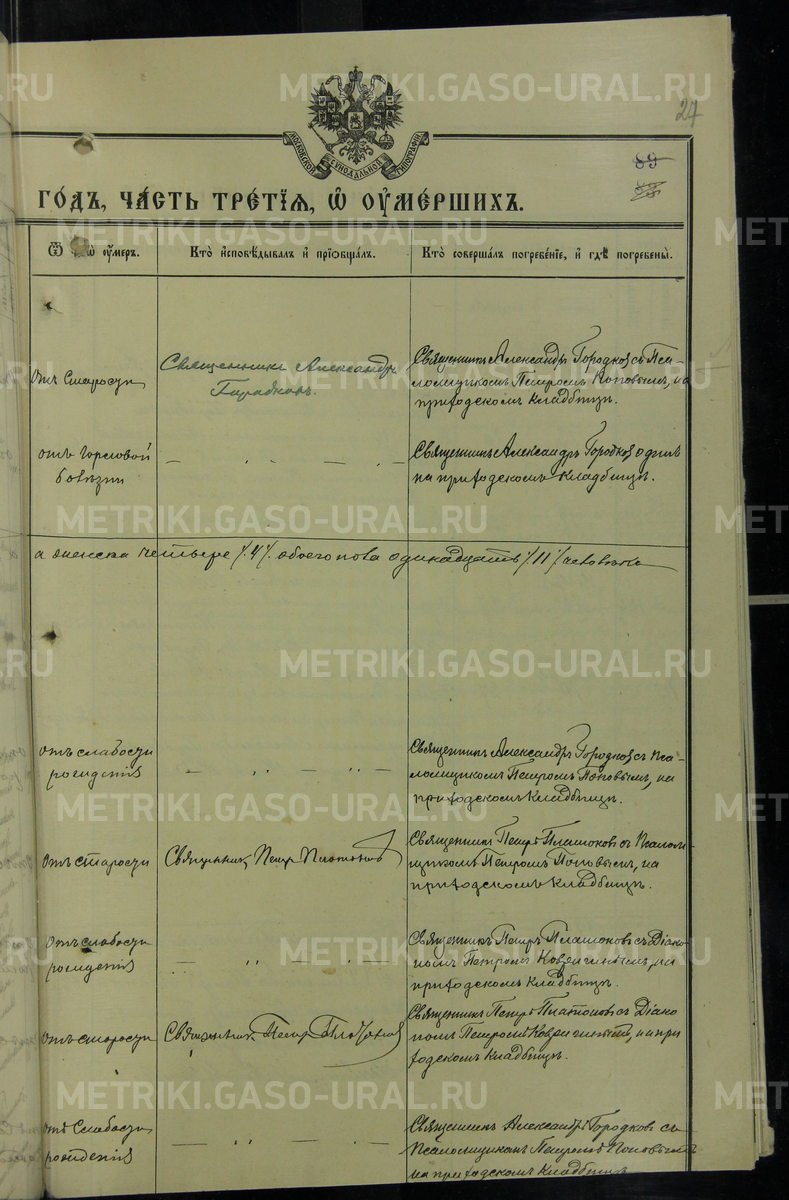 METRIKI.GASO-URAL.RU
27
МОСКОВСКОЙ СѴНОДАЛЬНОЙ ТИПОГРАФІИ
89
ГО́ДЪ, ЧА́СТЬ ТРЕ́ТІѦ, Ѡ ОУ҆МЕ́РШИХЪ.
Ѿ ѡ оу҆́меръ.
Кто̀ и҆сповѣ́дывалъ и҆ прїѡбща́лъ.
Кто̀ соверша́лъ погребе́нїе, и҆ гдѣ̀ погребены̀.
Отъ Старости
Священникъ Александръ
Городковъ.
Священникъ Александръ Городковъ съ Пса-
ломщикомъ Петромъ Поповымъ, на
приходскомъ кладбищѣ.
отъ горловой
болѣзни
— „ — „ —
Священникъ Александръ Городковъ одинъ
на приходскомъ кладбищѣ.
а женска четыре /.4/. обоего пола одинадцать /11/ человѣкъ
отъ слабости
рожденія
— „ — „ —
Священникъ Александръ Городковъ съ Пса-
ломщикомъ Петромъ Поповымъ, на
приходскомъ кладбищѣ.
Отъ старости
Священникъ Петръ Платоновъ
Священникъ Петръ Платоновъ съ Псалом-
щикомъ Петромъ Поповымъ, на
приходскомъ кладбищѣ.
Отъ слабости
рожденія
— „ — „ —
Священникъ Петръ Платоновъ съ Діако-
номъ Петромъ на
приходскомъ кладбищѣ.
Отъ старости
Священникъ Петръ Платоновъ
Священникъ Петръ Платоновъ съ Діако
номъ Петромъ на при
ходскомъ кладбищѣ.
отъ Слабости
рожденія
— „ — „ —
Священникъ Александръ Городковъ съ
Псаломщикомъ Петромъ Поповымъ
на приходскомъ кладбищѣ